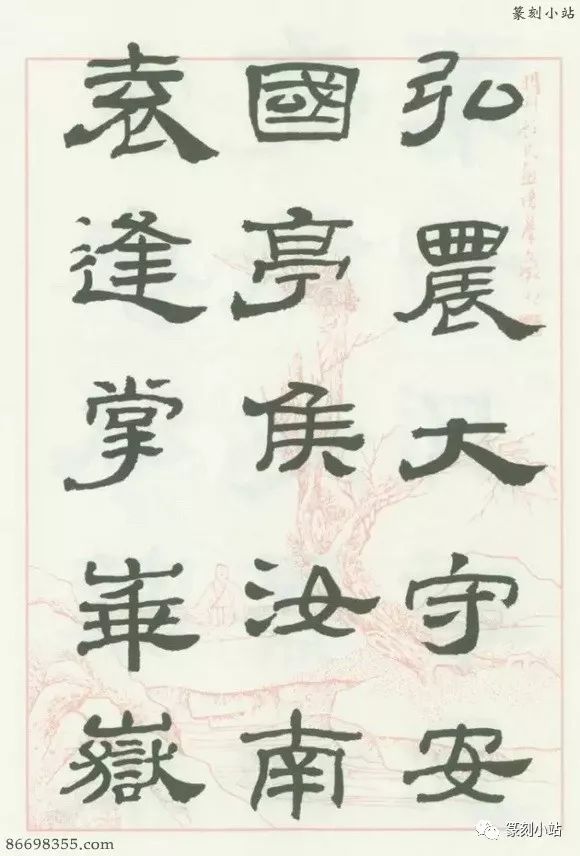 篆刻小站
弘農大守安
國亭侯汝南
袁逢掌崋嶽
86698355.com
篆刻小站